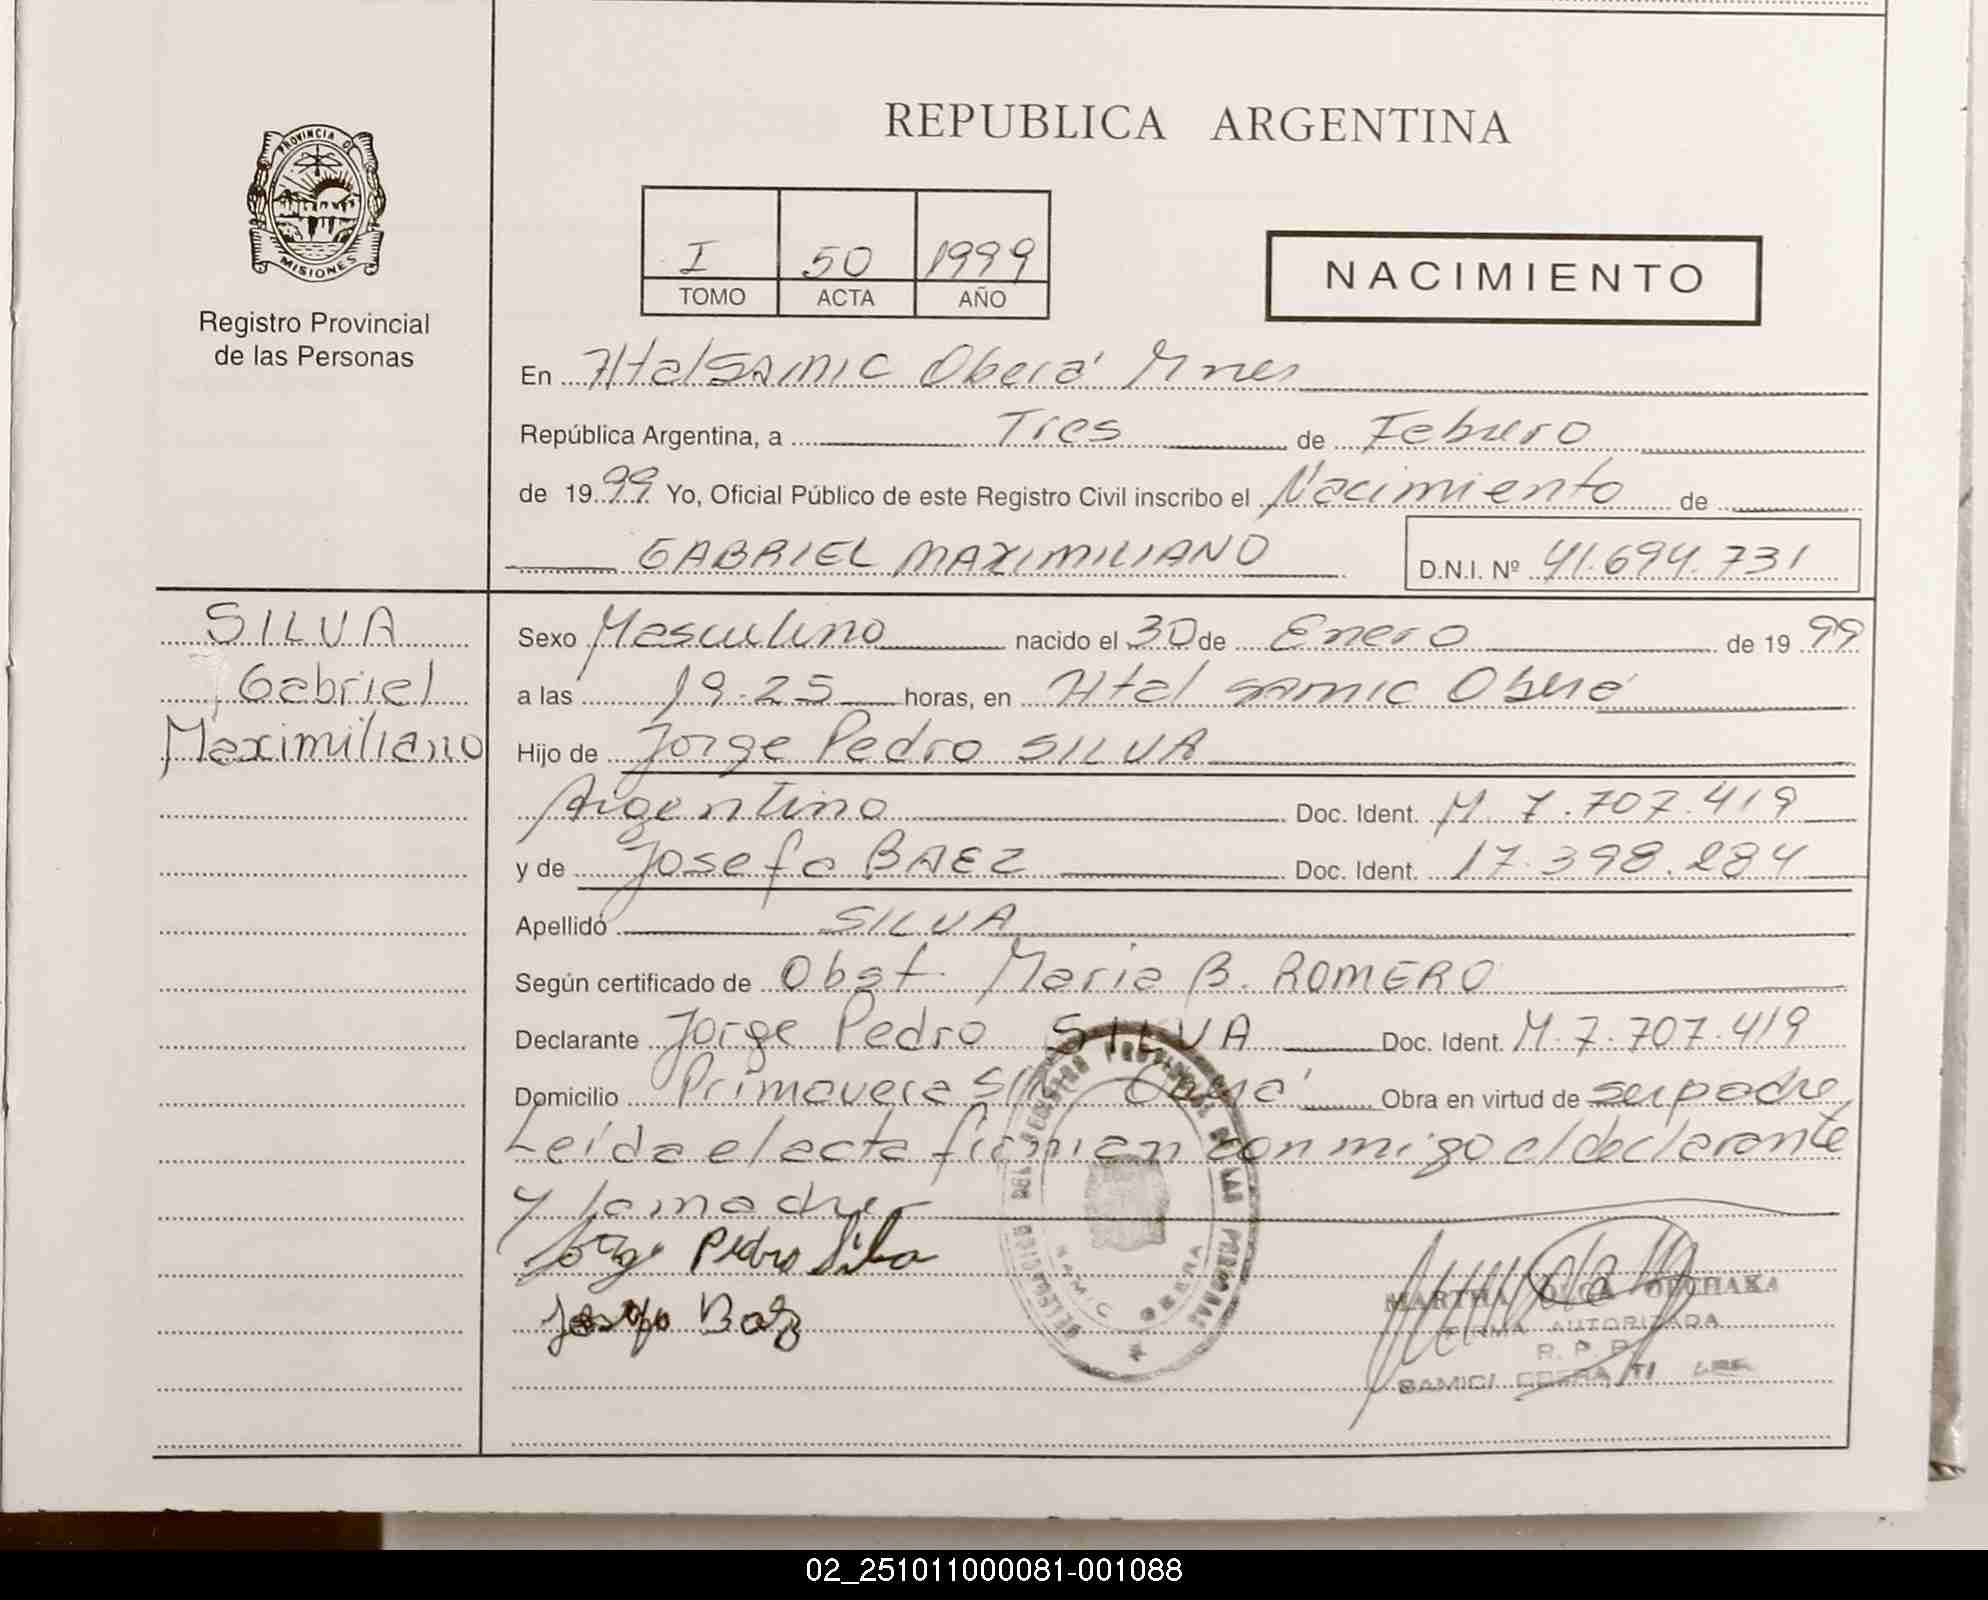 PROVINCIA D
MISIONES
Registro Provincial
de las Personas
REPUBLICA ARGENTINA
I 50 1999
TOMO ACTA AÑO
NACIMIENTO
En Htal SAMIC Oberá Mnes
República Argentina, a Tres de Febrero
de 1999 Yo, Oficial Público de este Registro Civil inscribo el Nacimiento de
GABRIEL MAXIMILIANO D.N.I. Nº 41.694.731
SILVA
Gabriel
Maximiliano
Sexo Masculino nacido el 30 de Enero de 1999
a las 19.25 horas, en Htal SAMIC Oberá
Hijo de Jorge Pedro SILVA
Argentino Doc. Ident. M. 7.707.419
y de Josefa BAEZ Doc. Ident. 17.398.284
Apellido SILVA
Según certificado de Obst. Maria B. ROMERO
Declarante Jorge Pedro SILVA Doc. Ident. M.7.707.419
Domicilio Primavera S/N Oberá Obra en virtud de ser padre
Leída el acta firman conmigo el declarante
y la madre
Jorge Pedro Silva
Josefa Baez
DELEGACION DEL REGISTRO PROVINCIAL DE LAS PERSONAS
SAMIC OBERA
MARTHA OLGA
FIRMA AUTORIZADA
R. P. P.
SAMIC/ OBERA
02_251011000081-001088